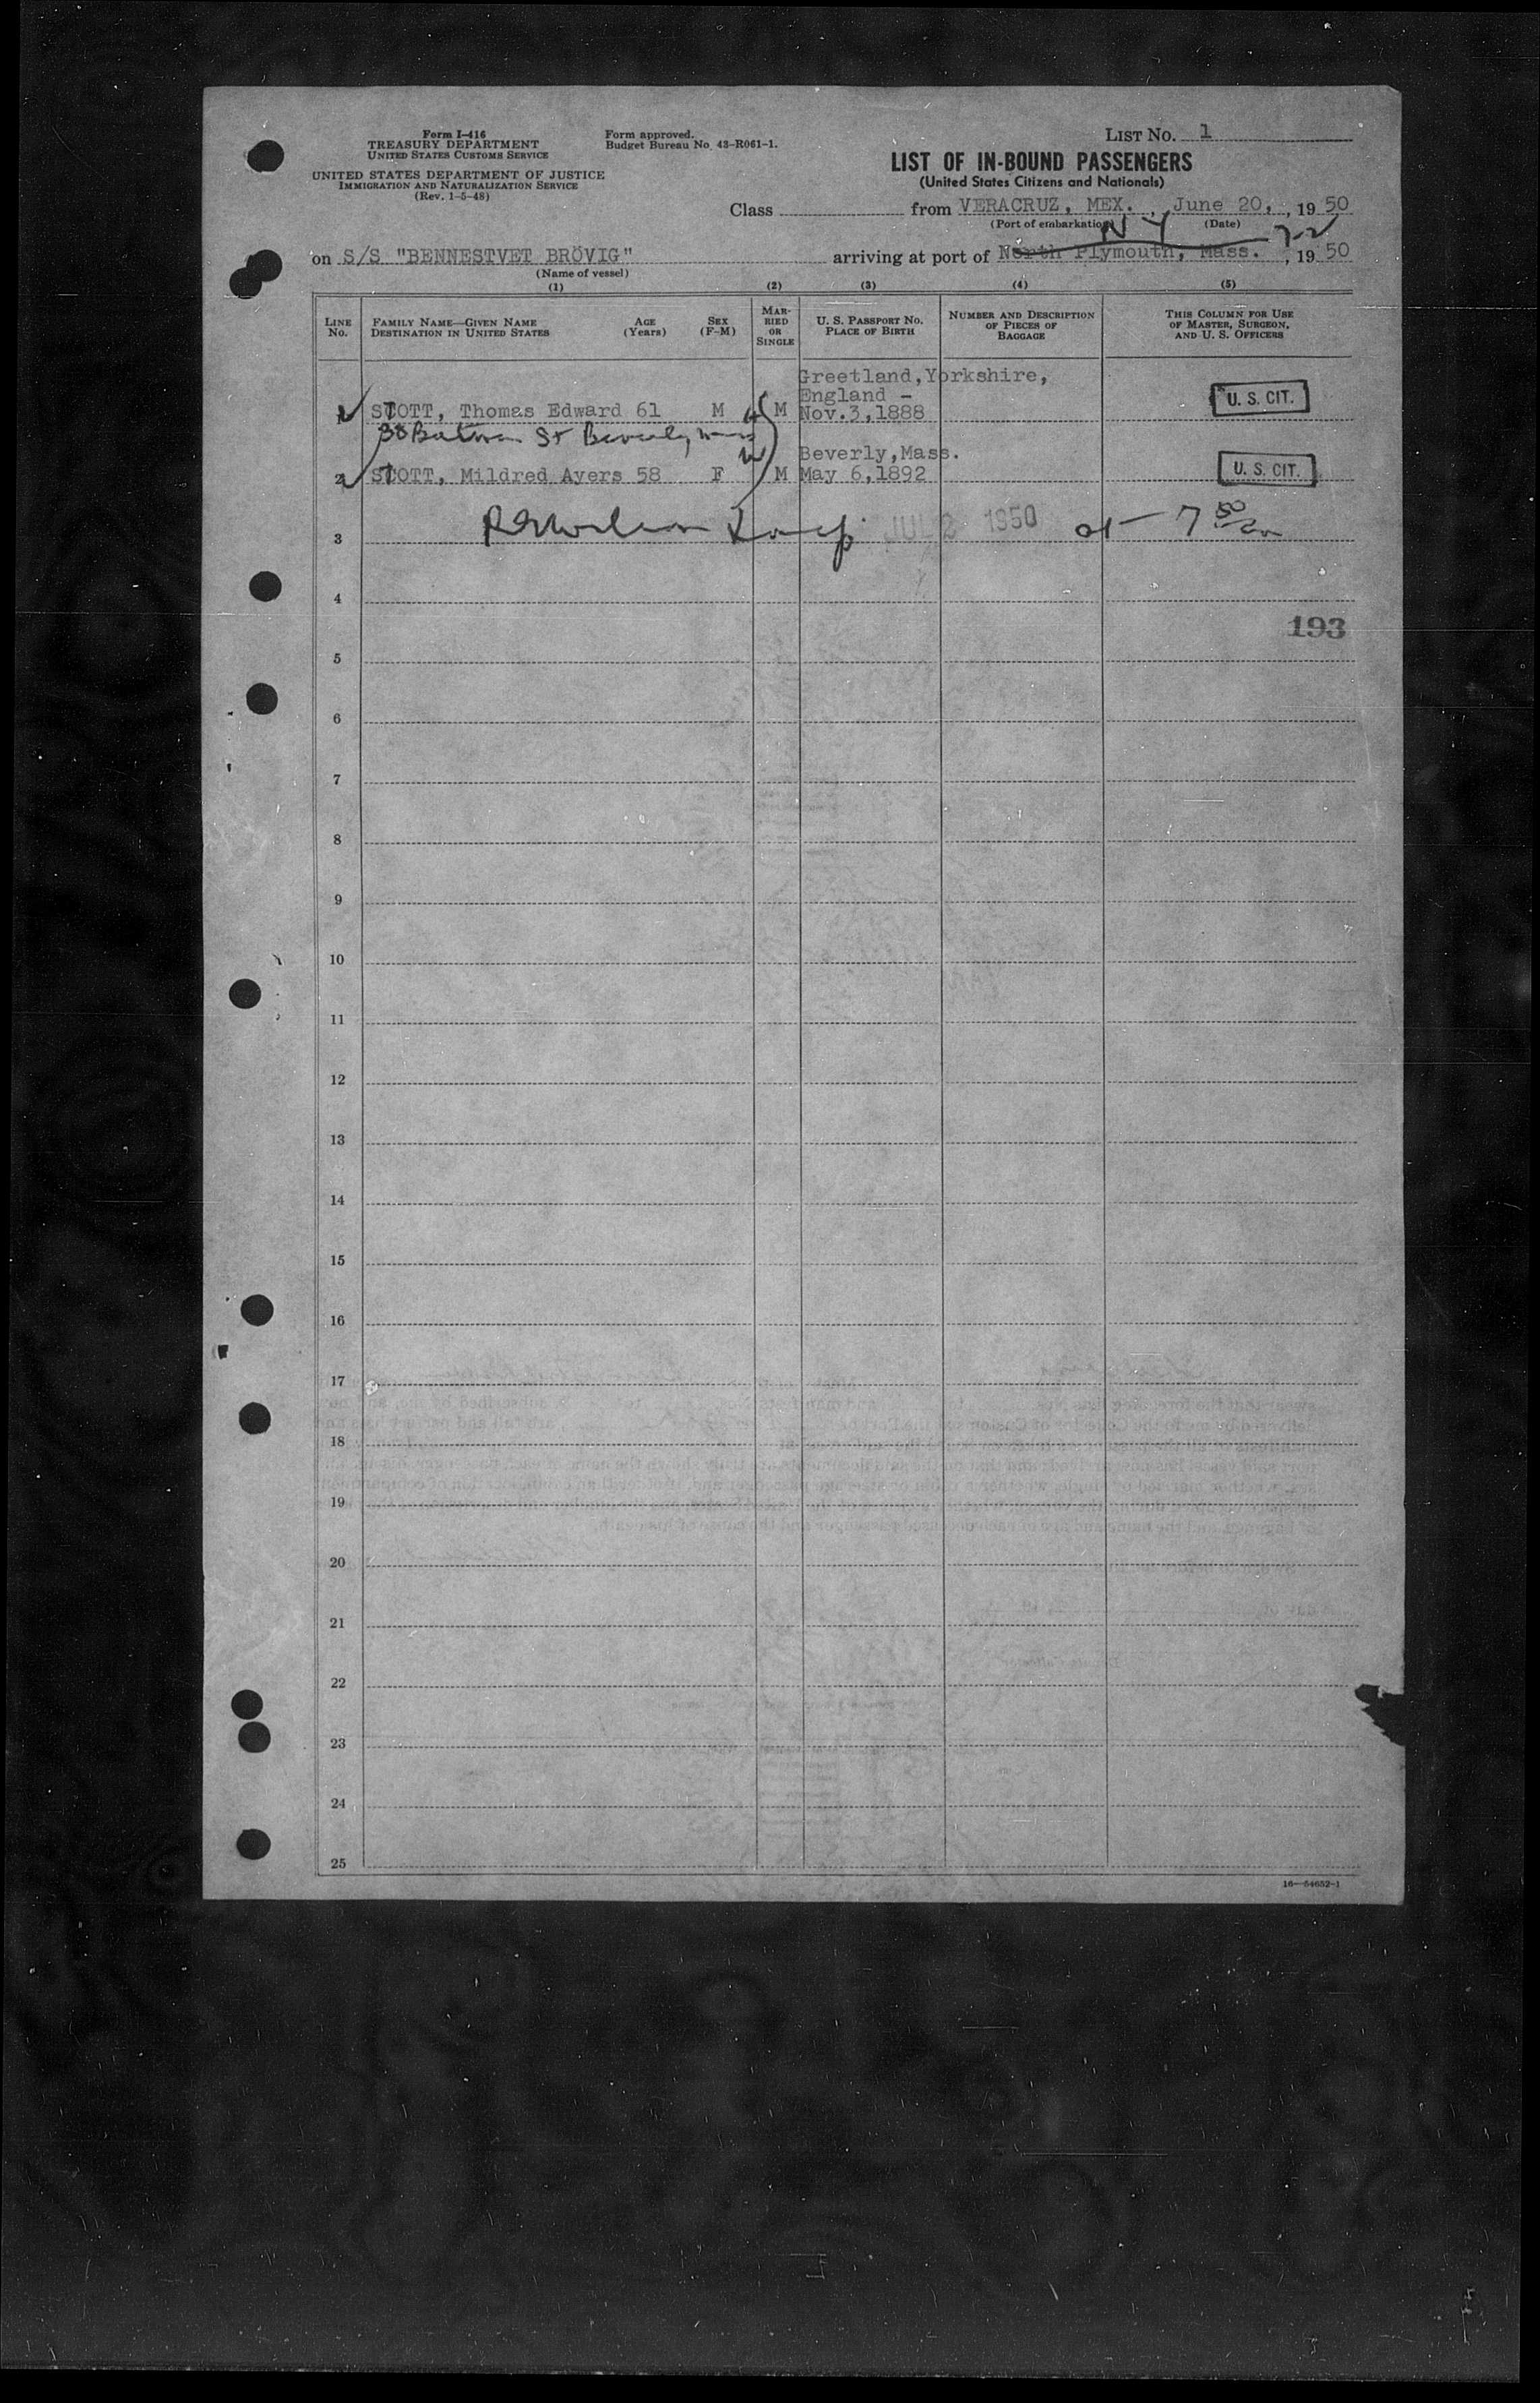 Form I-416
TREASURY DEPARTMENT
UNITED STATES CUSTOMS SERVICE
UNITED STATES DEPARTMENT OF JUSTICE
IMMIGRATION AND NATURALIZATION SERVICE
(Rev. 1-5-48)
Form approved.
Budget Bureau No. 43-R061-1.
LIST NO. 1
LIST OF IN-BOUND PASSENGERS
(United States Citizens and Nationals)
Class from VERACRUZ, MEX., June 20, , 1950
(Port of embarkation) (Date)
N Y 7-2
on S/S "BENNESTVET BRÖVIG" arriving at port of North Plymouth, Mass. , 1950
(Name of vessel)
(1) (2) (3) (4) (5)
LINE NO.
FAMILY NAME—GIVEN NAME
DESTINATION IN UNITED STATES
AGE
(Years)
SEX
(F-M)
MARRIED
OR
SINGLE
U. S. PASSPORT NO.
PLACE OF BIRTH
NUMBER AND DESCRIPTION
OF PIECES OF
BAGGAGE
THIS COLUMN FOR USE
OF MASTER, SURGEON,
AND U. S. OFFICERS
Greetland, Yorkshire,
England -
1 SCOTT, Thomas Edward 61 M M Nov.3,1888 U. S. CIT.
St Beverly Mass
Beverly, Mass.
2 SCOTT, Mildred Ayers 58 F M May 6,1892 U. S. CIT.
3 JUL 2 1950 at 7 50
4
193
5
6
7
8
9
10
11
12
13
14
15
16
17
18
19
20
21
22
23
24
25
16—54652-1